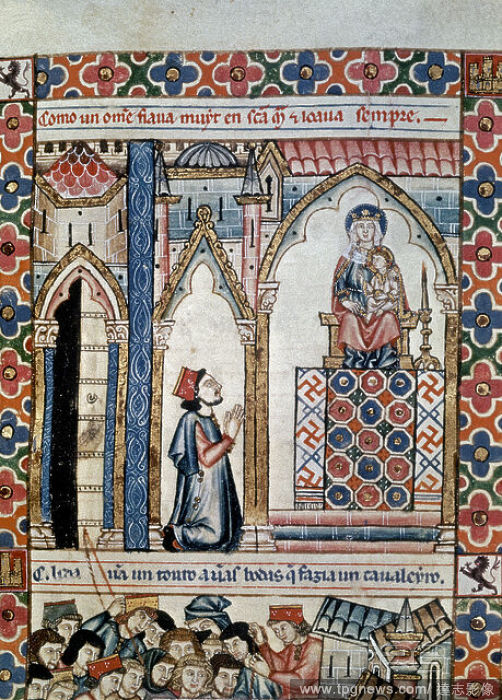 Como un om̃e fiaua muyt en sc̃a & loaua sempre.
un touto a uãs bodas q̃ fazia un caualeyro.
www.tpgnews.com / 達志影像